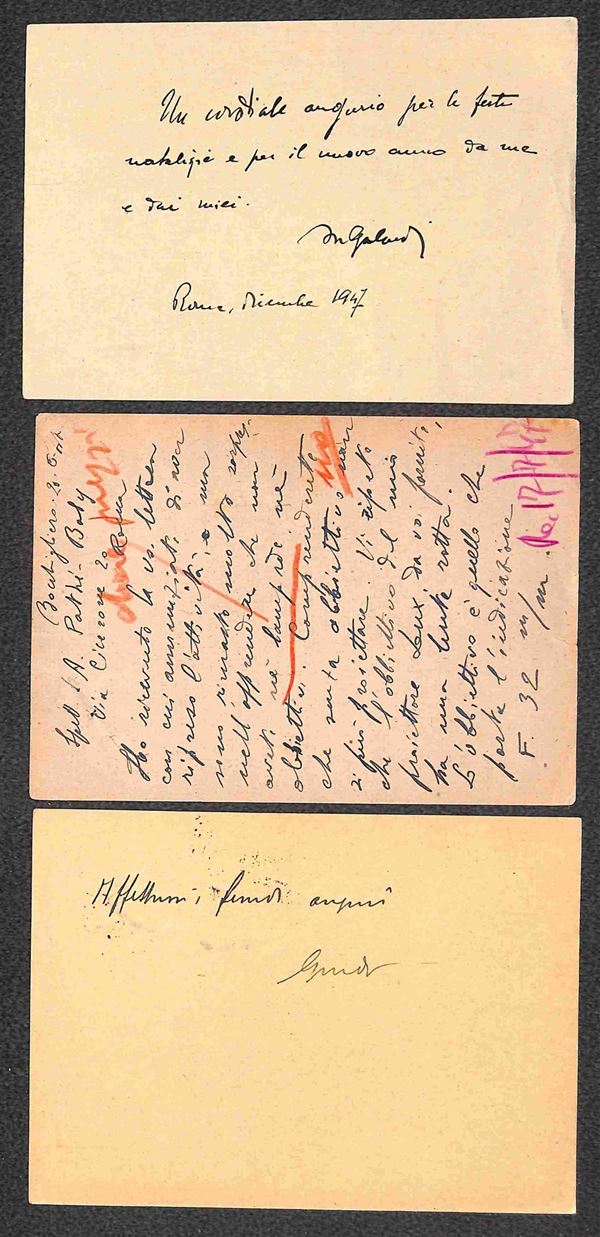 Un cordiale augurio per le feste
natalizie e per il nuovo anno da me
e dai miei.
Roma, dicembre 1947
20 Ott
Spett. S. A. Pathé-Baby
Via Cicerone 2 Roma
Ho ricevuto la vs. lettera
con cui annunziati di aver
ripreso l'attività, e ma
sono rimasto molto sorpre
nell'apprendere che non
avete nè lampade nè
obbiettivi. Comprenderete
che senza obbiettivo non
si può proiettare. Vi ripeto
che l'obbiettivo del mio
proiettore Lux da voi fornito,
ha una lente rotta.
L'obbiettivo è quello che
porta l'indicazione
F. 32 m/m.
Affettuosi, fervidi auguri
Guido